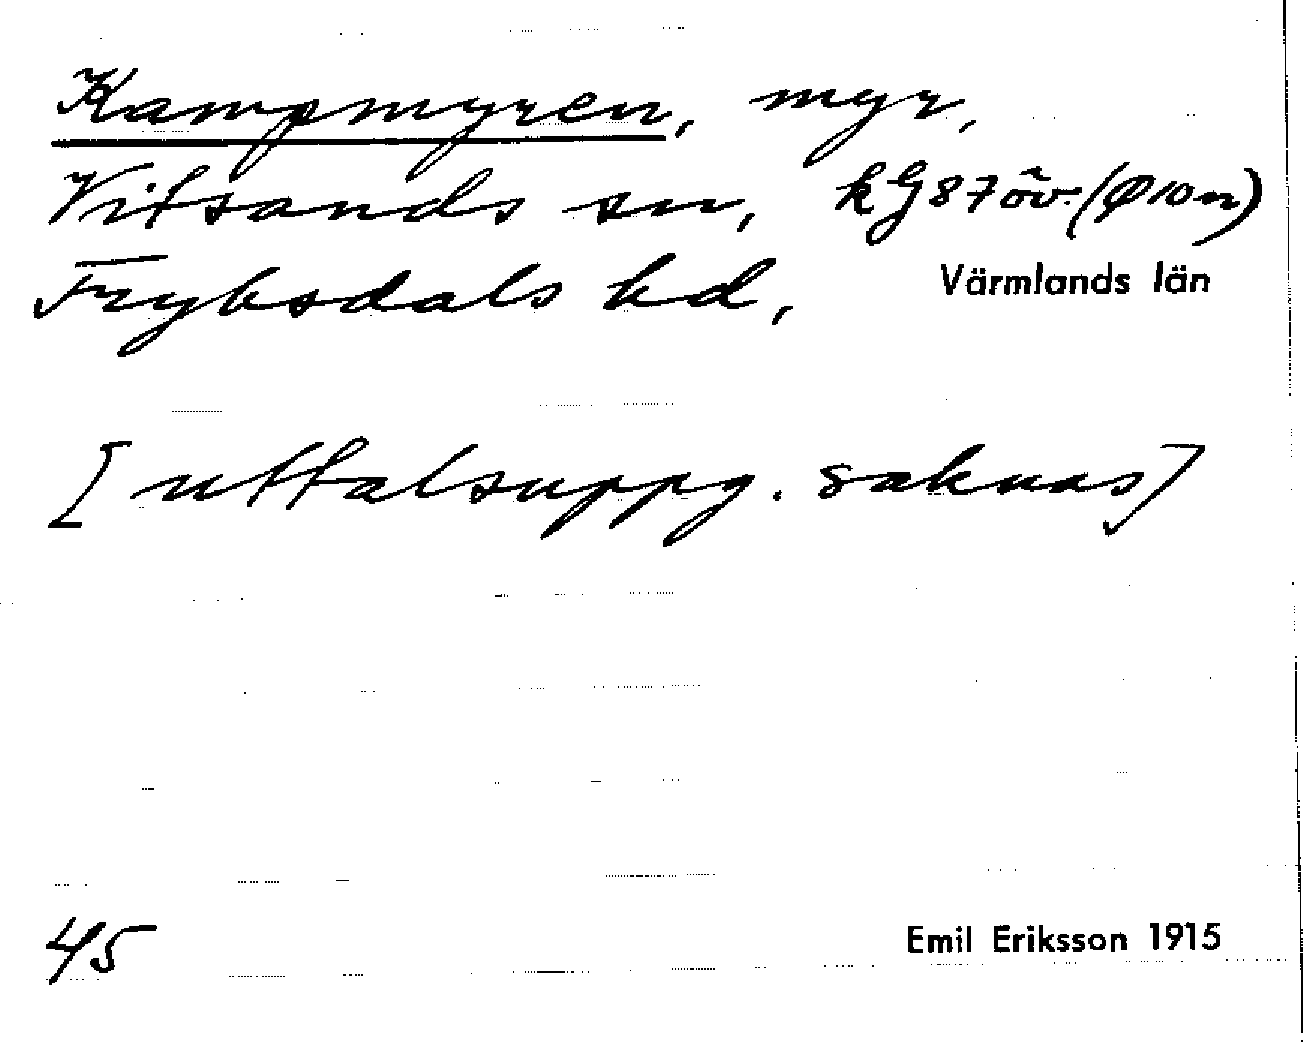 Kampmyren, myr,
Vitsands sn, kG87öv. (Ø10n)
Fryksdals hd, Värmlands län
[uttalsuppg. saknas]
45 Emil Eriksson 1915